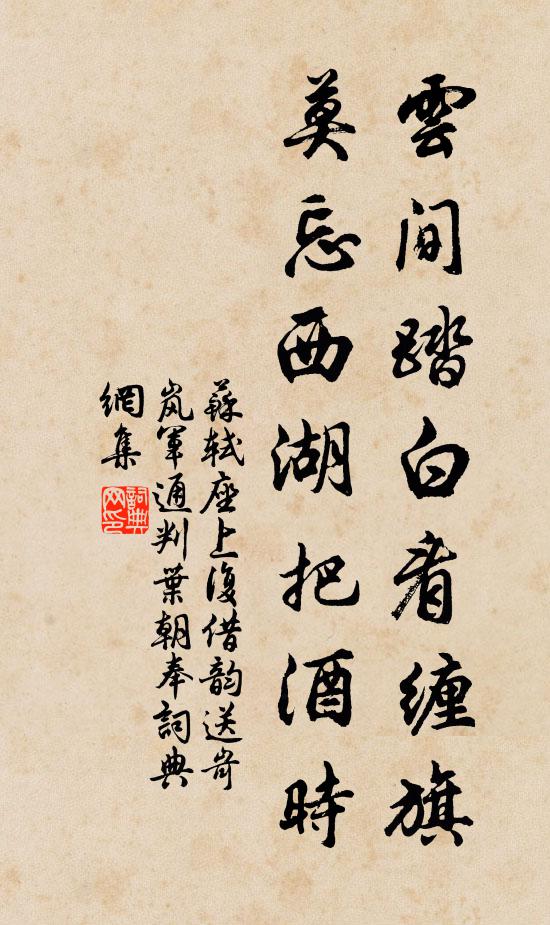 雲間踏白看纏旗
莫忘西湖把酒時
蘇軾座上復借韵送岢
嵐軍通判葉朝奉詞典
網集
詞典
网印